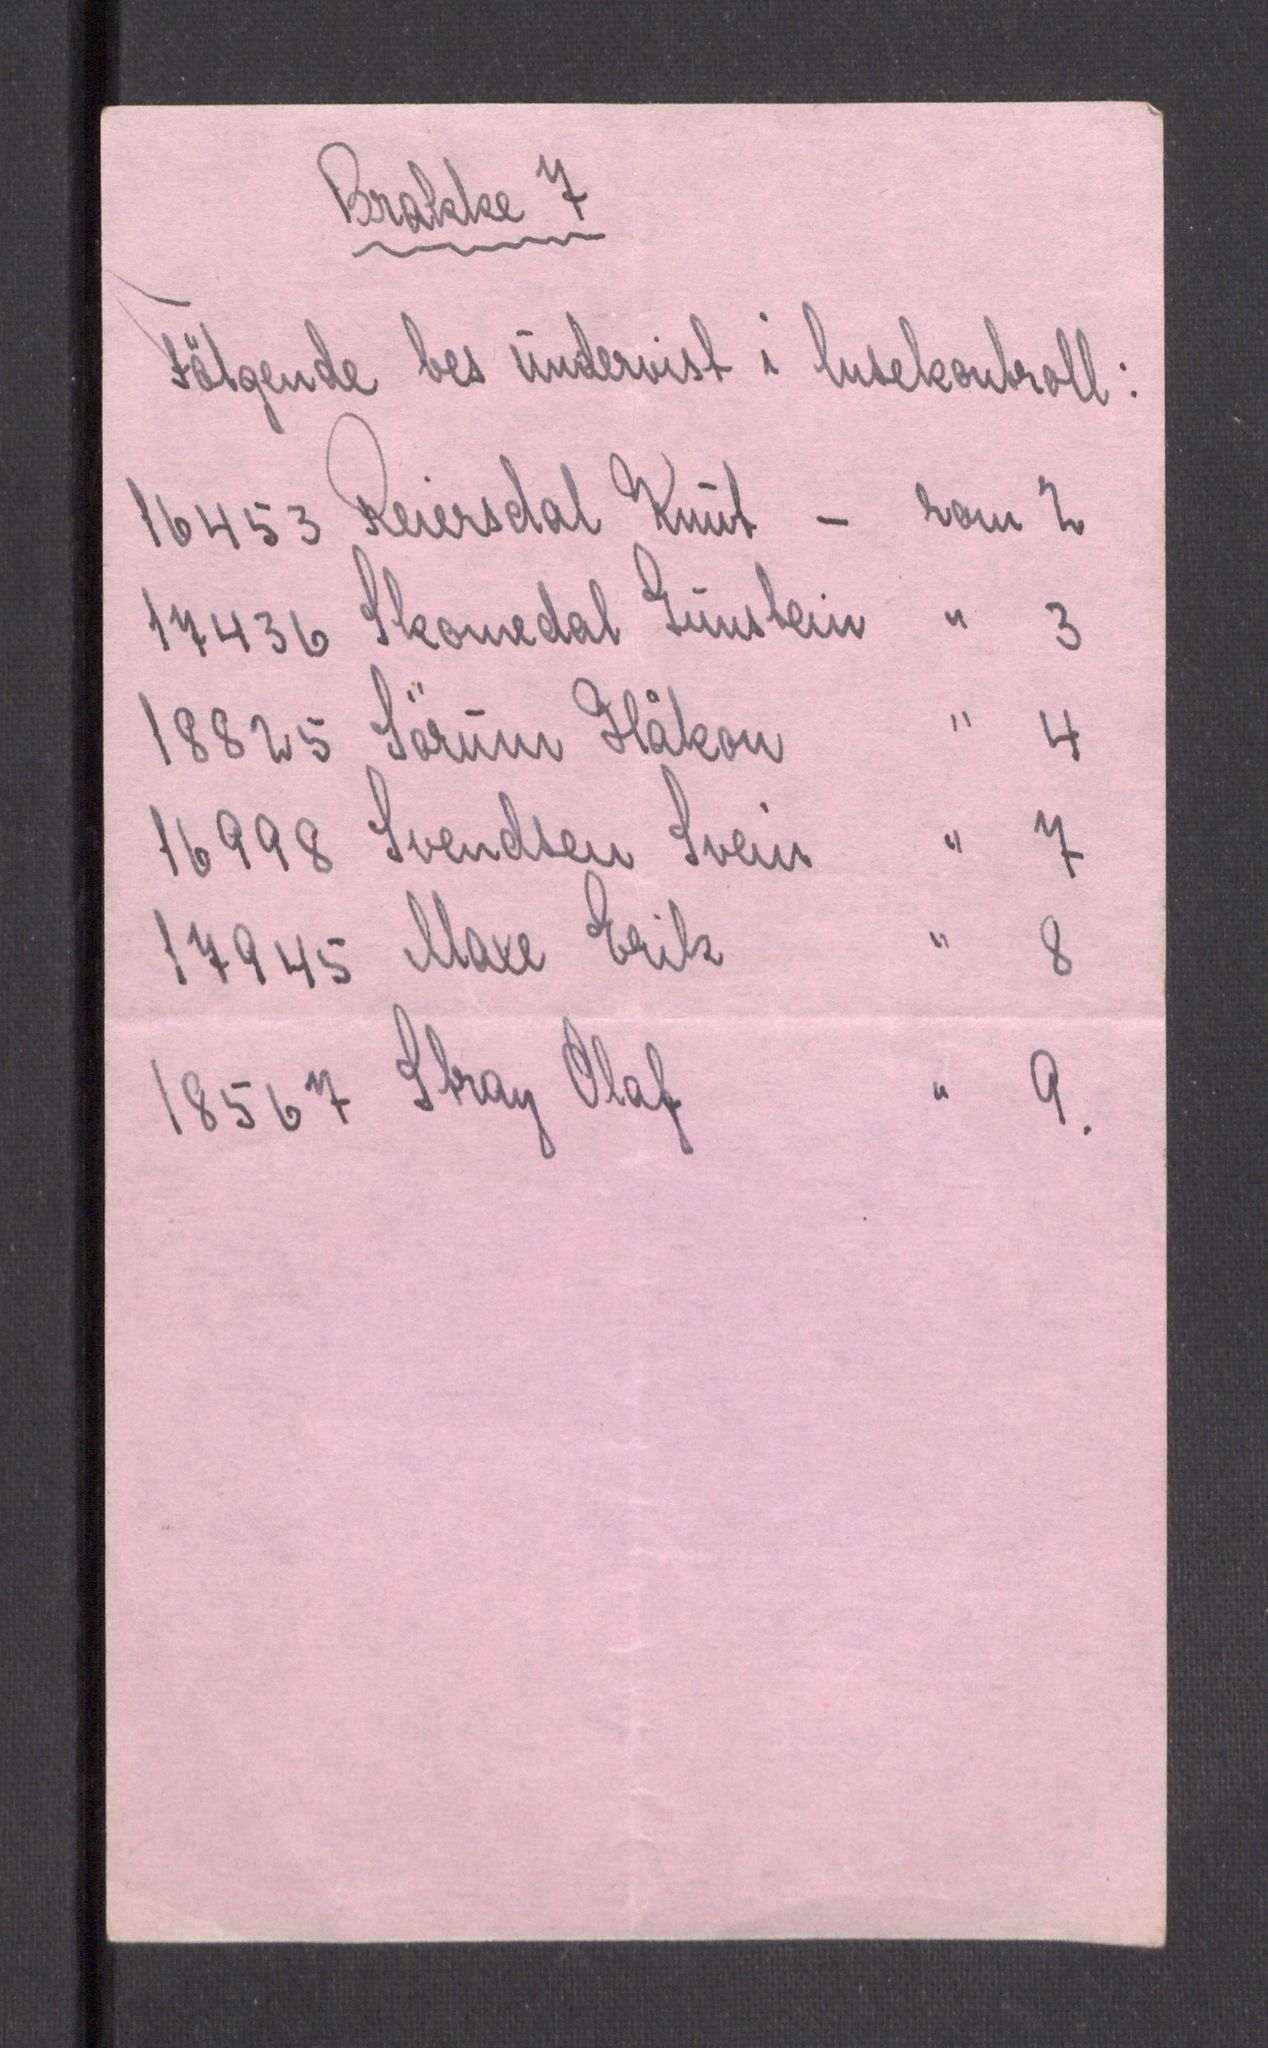 Brakke 7
Fölgende bes undervist i lusekontroll:
16453 Reiersdal Knut - rom 2
17436 Skomedal Gunstein " 3
18825 Sörum Håkon " 4
16998 Svendsen Svein " 7
17945 Maxe Erik " 8
18567 Stray Olaf " 9.